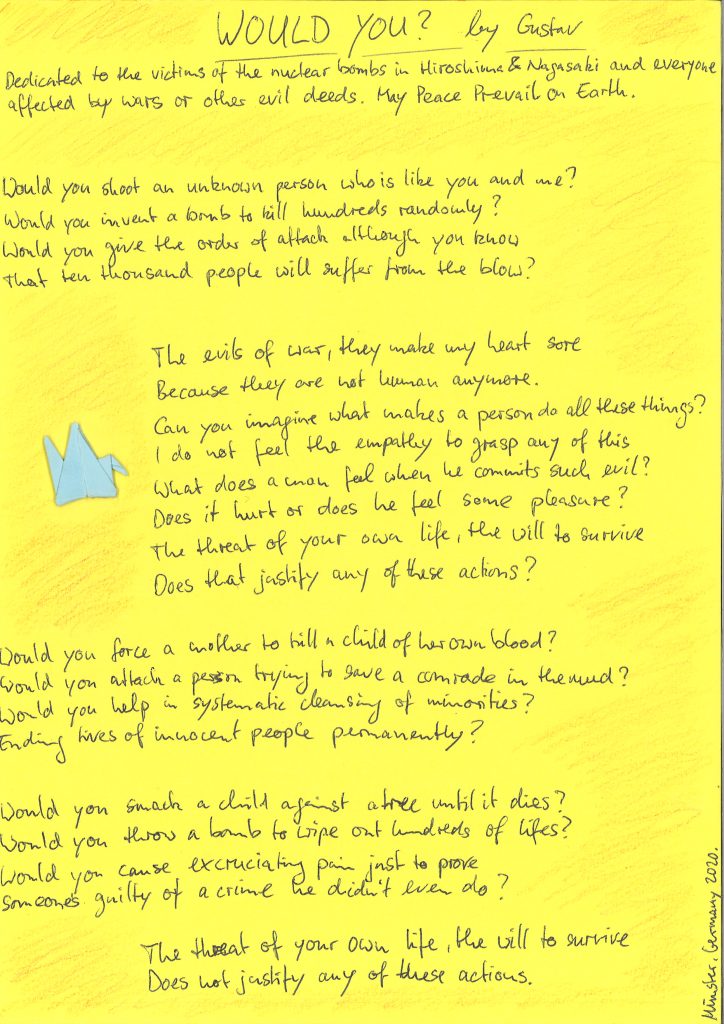 WOULD YOU? by Gustav
Dedicated to the victims of the nuclear bombs in Hiroshima & Nagasaki and everyone
affected by wars or other evil deeds. May Peace Prevail on Earth.
Would you shoot an unknown person who is like you and me?
Would you invent a bomb to kill hundreds randomly?
Would you give the order of attack although you know
That ten thousand people will suffer from the blow?
The evils of war, they make my heart sore
Because they are not human anymore.
Can you imagine what makes a person do all these things?
I do not feel the empathy to grasp any of this
What does a man feel when he commits such evil?
Does it hurt or does he feel some pleasure?
The threat of your own life, the will to survive
Does that justify any of these actions?
Would you force a mother to kill a child of her own blood?
Would you attack a person trying to save a comrade in the mud?
Would you help in systematic cleansing of minorities?
Ending lives of innocent people permanently?
Would you smack a child against a tree until it dies?
Would you throw a bomb to wipe out hundreds of lifes?
Would you cause excruciating pain just to prove
Someone's guilty of a crime he didn't even do?
The threat of your own life, the will to survive
Does not justify any of these actions.
Münster, Germany 2020.